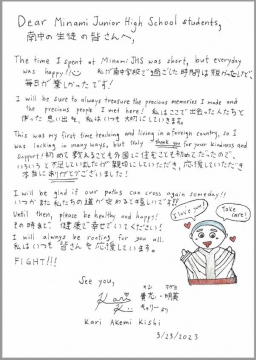 Dear Minami Junior High School students,
南中の生徒の皆さんへ,
The time I spent at Minami JHS was short, but everyday
was happy!! 私が南中学校で過ごした時間は短かったけど、
毎日が楽しかったです!
I will be sure to always treasure the precious memories I made and
the precious people I met here! 私はここで出会った人たちと
作った思い出を、私はいつも大切にしていきます。
This was my first time teaching and living in a foreign country, so I
was lacking in many ways, but truly thank you for your kindness and
support! 初めて教えることも外国に住むことも初めてだったので、
いろいろと不足していましたが親切にしていただき、応援していただき
本当にありがとございました!
I will be glad if our paths can cross again someday!!
いつかまた私たちの道が
Until then, please be healthy and happy!
その時まで、健康で幸せでいてください!
I will always be rooting for you all.
私はいつも皆さんを応援しています。
FIGHT!!!
I love you!
Take care!
See you,
Kari
Kari Akemi Kishi
3/23/2023